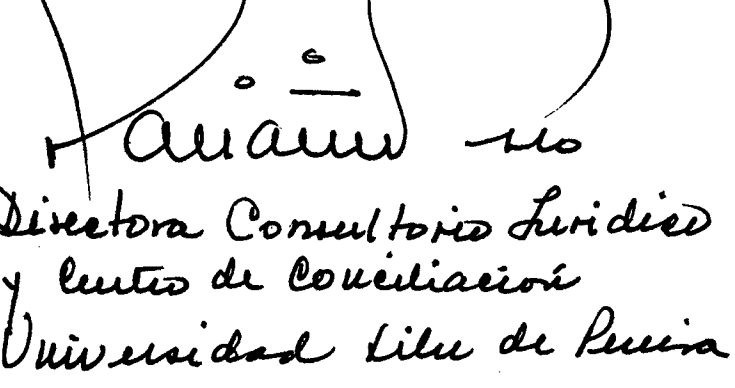 Directora Consultorio Juridico
y Centro de Conciliación
Universidad Libre de Pereira